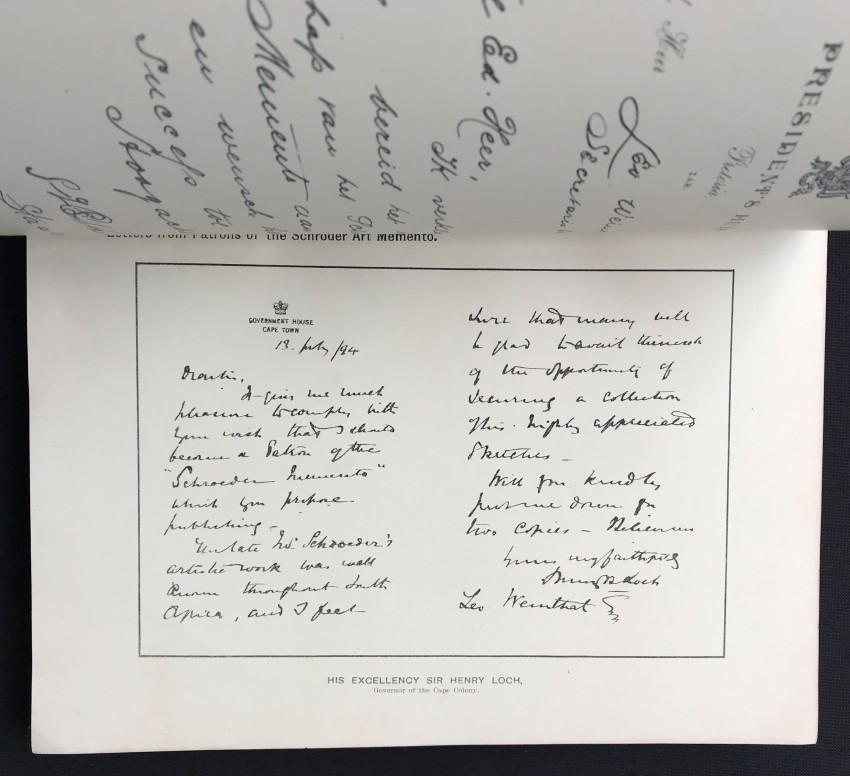 PRESIDENT'S
Pretoria
Leo
Ed. Heer,
bereid het
Memento
en wensch
Succes
Letters from Patrons of the Schröder Art Memento.
GOVERNMENT HOUSE
CAPE TOWN
13. July /94
Dear Sir,
It gives me much
pleasure to comply with
your wish that I should
become a Patron of the
"Schroeder Memento"
which you propose
publishing -
The late Mr Schroeder's
artistic work was well
known throughout South
Africa, and I feel
sure that many will
be glad to avail themselves
of the opportunity of
securing a collection
of his highly appreciated
Sketches -
Will you kindly
put me down for
two Copies - Believe me
yours very faithfully
Henry B Loch
Leo Weinthal Esq
HIS EXCELLENCY SIR HENRY LOCH,
Governor of the Cape Colony.